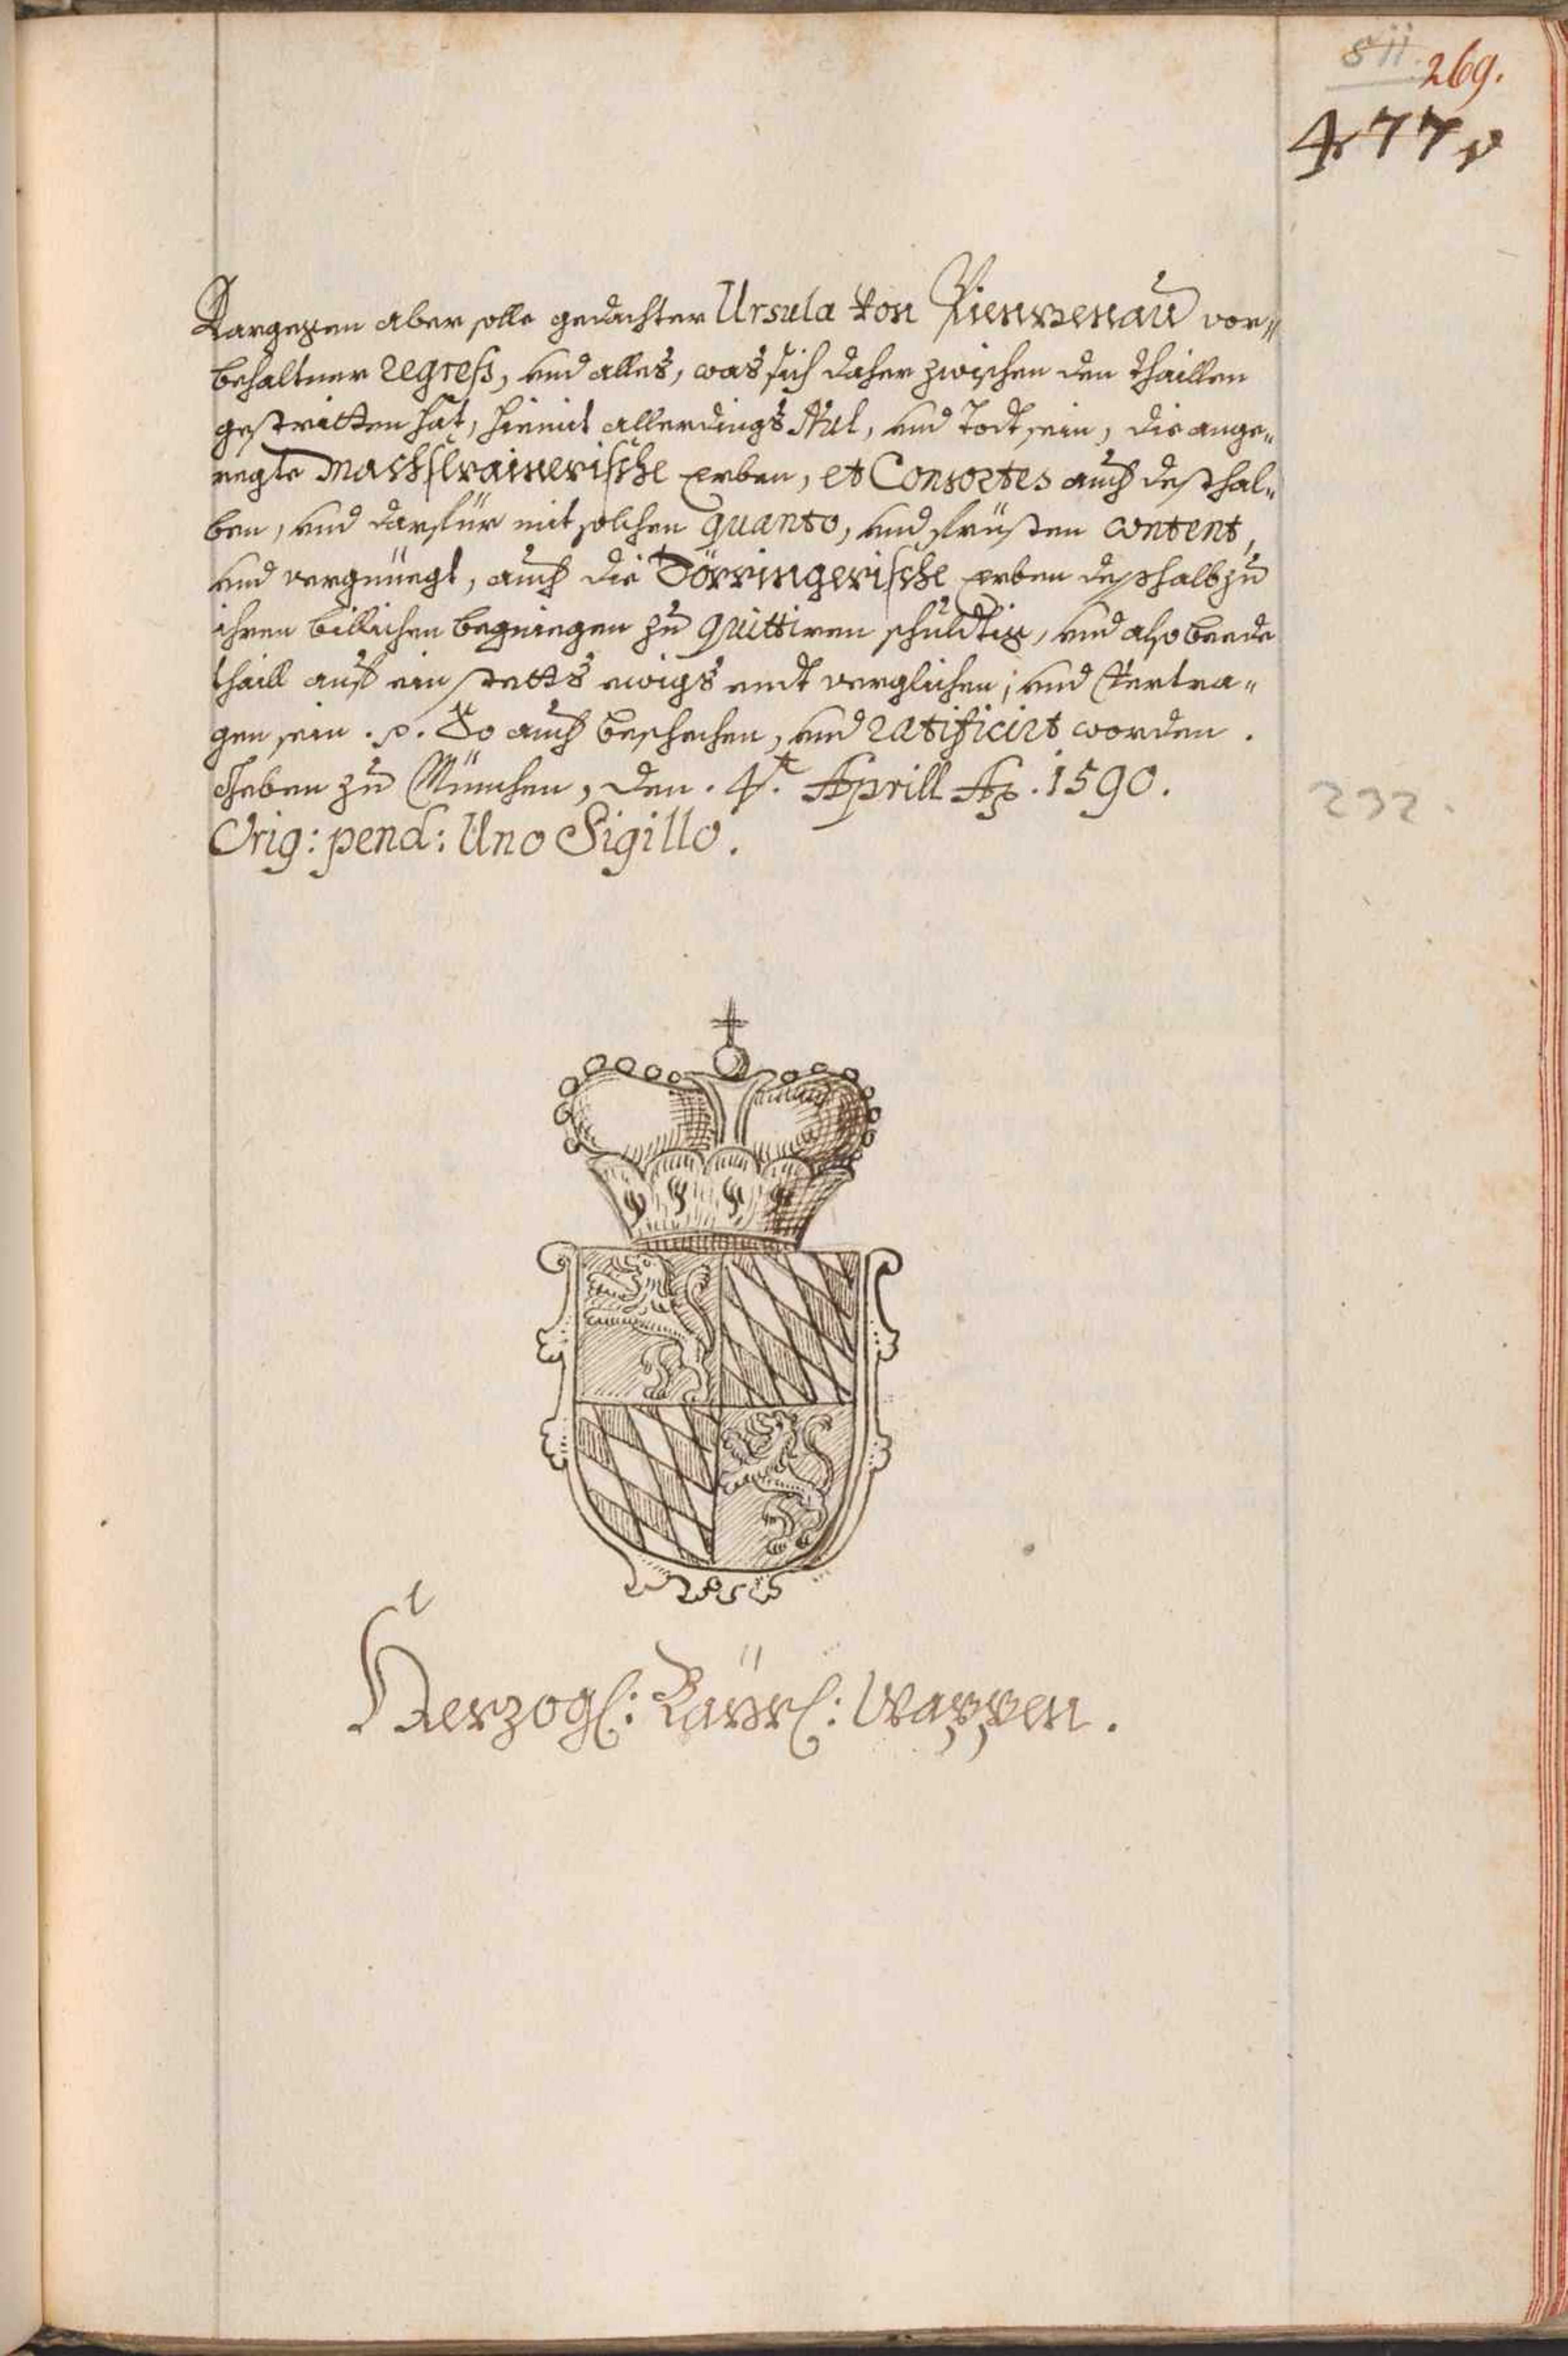 511.
269.
477
Dargegen aber solle gedachter Ursula von Pienzenau vor=
behaltner regress, und alles, was sich daher zwischen den thaillen
gestritten hat, hiemit allerdings Nul, und Todt sein, die ange=
regte Machslrainerische Erben, et Consortes auch desthal=
ben, und darfür mit solchen quanto, und früsten content,
und vergnüegt, auch die Törringerische Erben desshalb zu
ihren billichen begniegen zu quittiren schuldtig, und also beede
thaill auf ein stetts ewigs endt verglichen, und Vertra=
gen sein. p. So auch beschechen, und ratificirt worden.
Geben zu München, den. 4.t Aprill Ao. 1590.
232.
Orig: pend: Uno Sigillo.
Herzogl: Bayrl: Wappen.